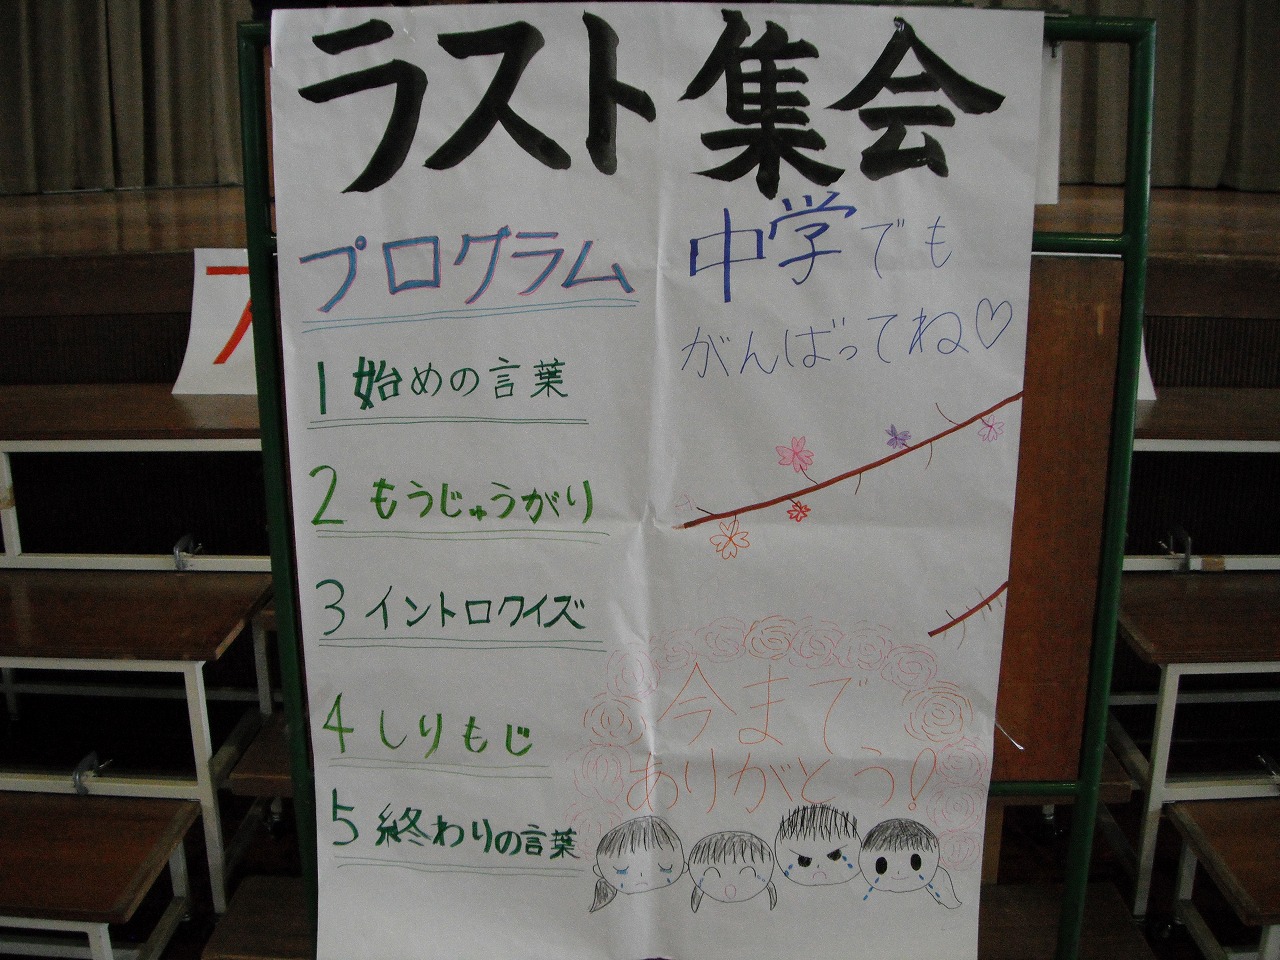 ラスト集会
プログラム
1 始めの言葉
2 もうじゅうがり
3 イントロクイズ
4 しりもじ
5 終わりの言葉
中学でも
がんばってね♡
今まで
ありがとう!